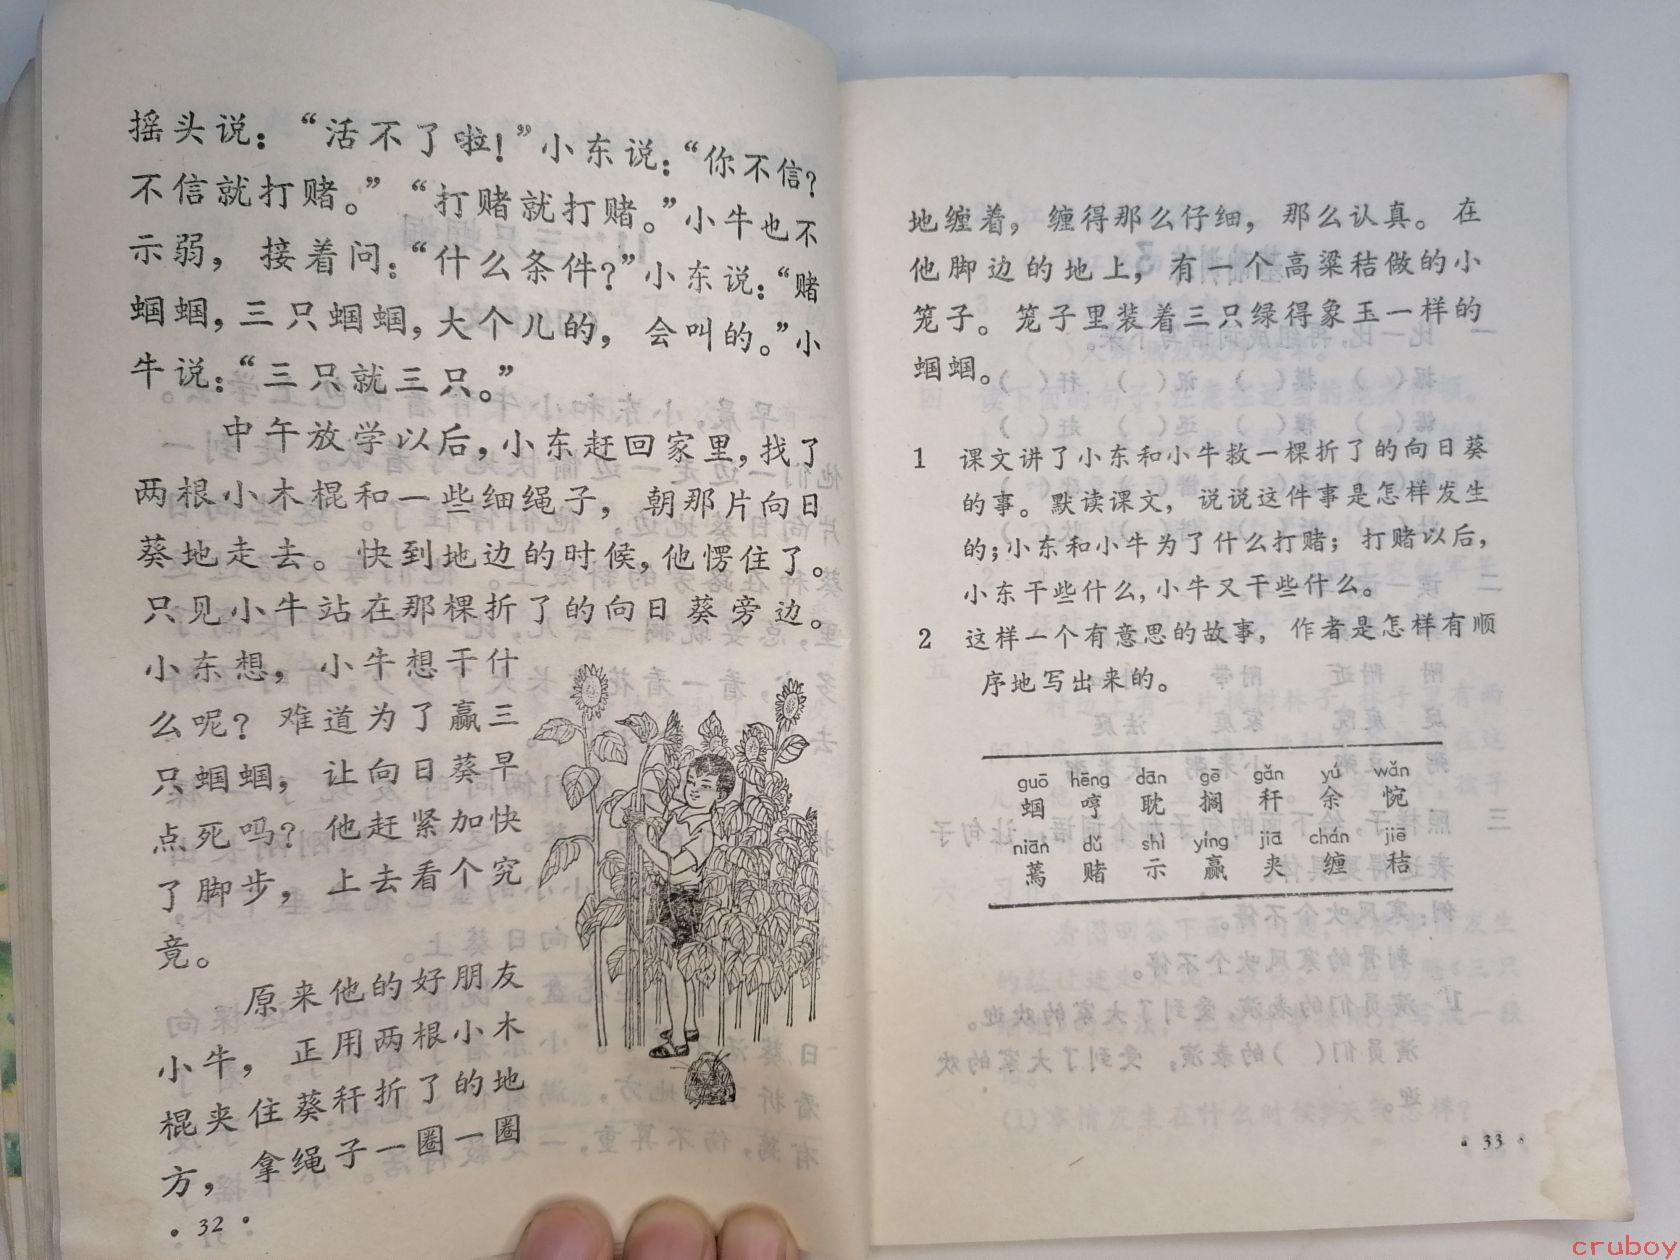 摇头说：“活不了啦！”小东说：“你不信？
不信就打赌。”“打赌就打赌。”小牛也不
示弱，接着问：“什么条件？”小东说：“赌
蝈蝈，三只蝈蝈，大个儿的，会叫的。”小
牛说：“三只就三只。”
中午放学以后，小东赶回家里，找了
两根小木棍和一些细绳子，朝那片向日
葵地走去。快到地边的时候，他愣住了。
只见小牛站在那棵折了的向日葵旁边。
小东想，小牛想干什
么呢？难道为了赢三
只蝈蝈，让向日葵早
点死吗？他赶紧加快
了脚步，上去看个究
竟。
原来他的好朋友
小牛，正用两根小木
棍夹住葵秆折了的地
方，拿绳子一圈一圈
• 32 •
地缠着，缠得那么仔细，那么认真。在
他脚边的地上，有一个高粱秸做的小
笼子。笼子里装着三只绿得象玉一样的
蝈蝈。
1 课文讲了小东和小牛救一棵折了的向日葵
的事。默读课文，说说这件事是怎样发生
的；小东和小牛为了什么打赌；打赌以后，
小东干些什么，小牛又干些什么。
2 这样一个有意思的故事，作者是怎样有顺
序地写出来的。
guō hēng dān gē gǎn yú wǎn
蝈 哼 耽 搁 秆 余 惋
niān dǔ shì yíng jiā chán jiē
蔫 赌 示 赢 夹 缠 秸
• 33 •
cruboy